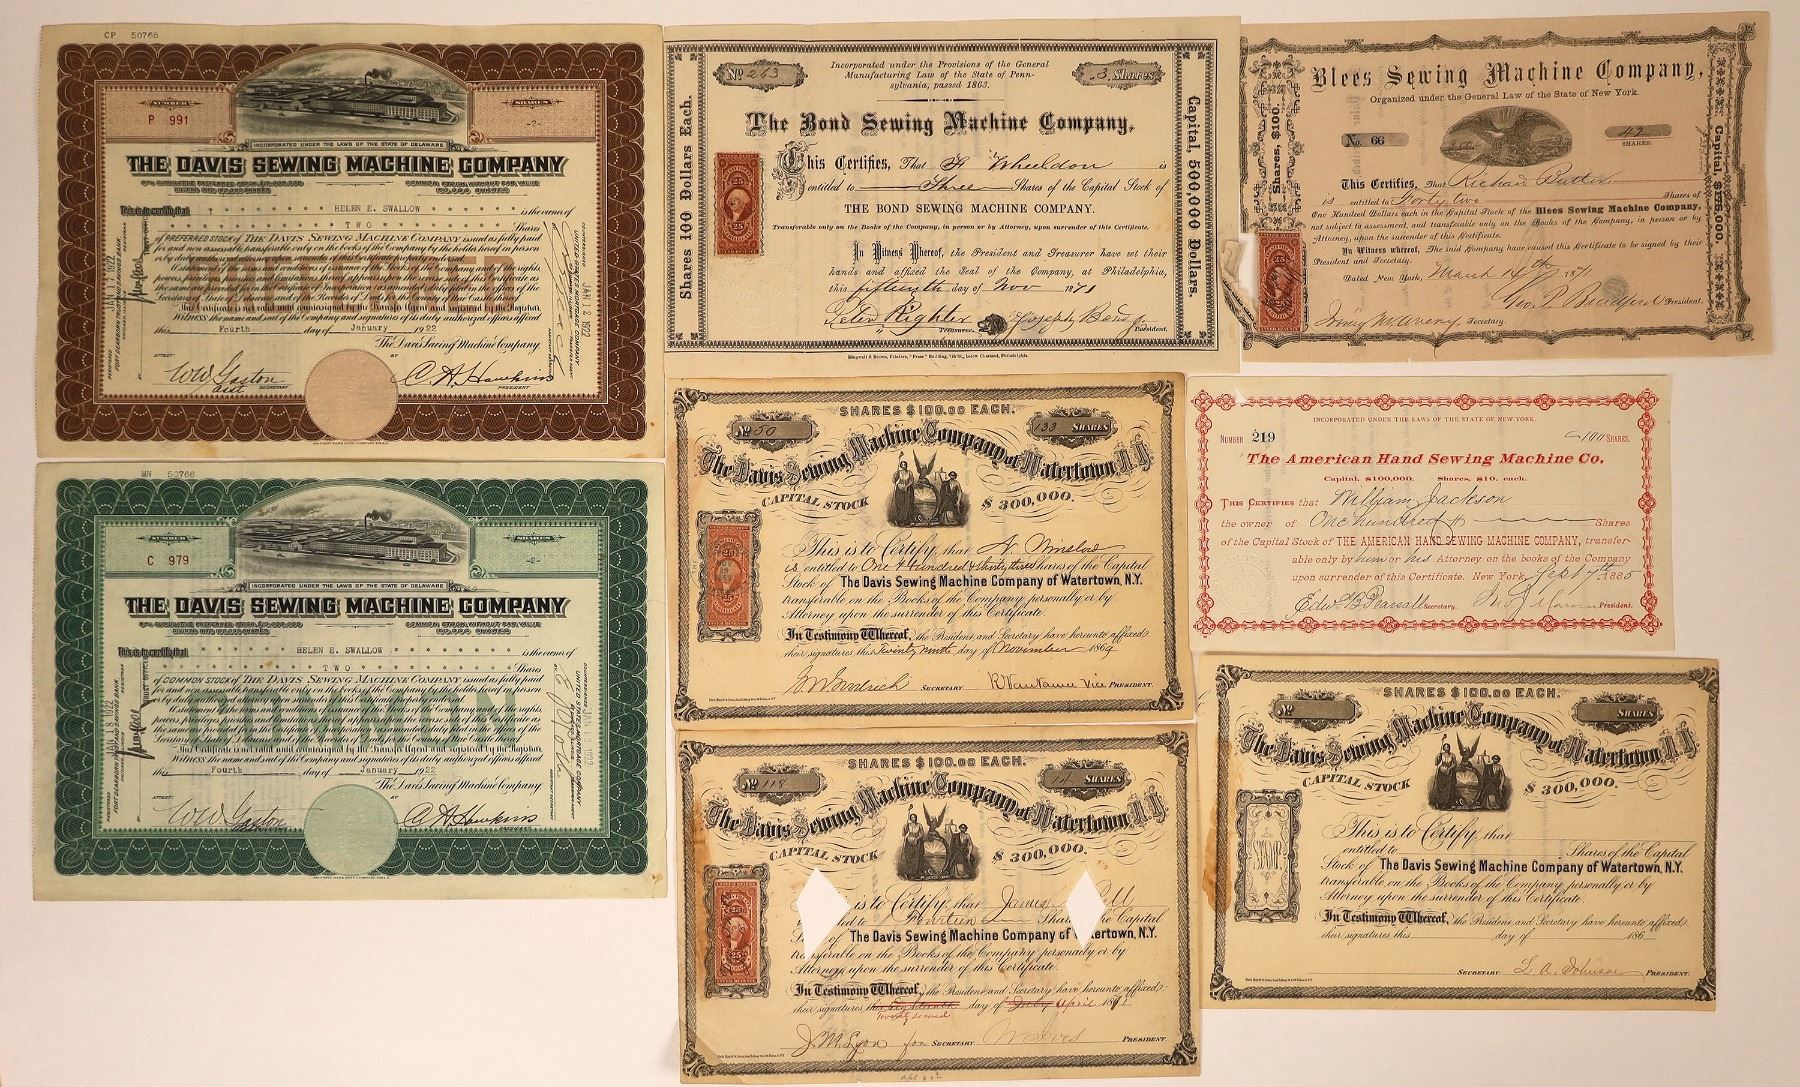 CP 50766
NUMBER
P 991
SHARES
-2-
INCORPORATED UNDER THE LAWS OF THE STATE OF DELAWARE
THE DAVIS SEWING MACHINE COMPANY
COMMON STOCK WITHOUT PAR VALUE
This is to certify that HELEN E. SWALLOW is the owner of
TWO Shares
of PREFERRED STOCK of THE DAVIS SEWING MACHINE COMPANY issued as fully paid
for and non assessable, transferable only on the books of the Company by the holder in person
or by duly authorized attorney on surrender of this Certificate properly endorsed.
This Certificate is not valid until countersigned by the Transfer Agent and registered by the Registrar.
Witness the name and seal of the Company and signatures of its duly authorized officers affixed
this Fourth day of January 1922
The Davis Sewing Machine Company.
ATTEST: BY
W W Gaston SECRETARY
C. A. Hawkins PRESIDENT
JAN 17 1922
JAN 12 1922
MN 50766
NUMBER
C 979
SHARES
-2-
INCORPORATED UNDER THE LAWS OF THE STATE OF DELAWARE
THE DAVIS SEWING MACHINE COMPANY
COMMON STOCK WITHOUT PAR VALUE
This is to certify that HELEN E. SWALLOW is the owner of
TWO Shares
of COMMON STOCK of THE DAVIS SEWING MACHINE COMPANY issued as fully paid
for and non assessable, transferable only on the books of the Company by the holder in person
or by duly authorized attorney on surrender of this Certificate properly endorsed.
This Certificate is not valid until countersigned by the Transfer Agent and registered by the Registrar.
Witness the name and seal of the Company and signatures of its duly authorized officers affixed
this Fourth day of January 1922
The Davis Sewing Machine Company.
ATTEST: BY
W W Gaston
C. A. Hawkins
No 263
Incorporated under the Provisions of the General
Manufacturing Law of the State of Penn-
sylvania, passed 1863.
3 Shares
Shares 100 Dollars Each.
Capital, 500,000 Dollars.
The Bond Sewing Machine Company,
This Certifies, That Wheeldon is
entitled to Three Shares of the Capital Stock of
THE BOND SEWING MACHINE COMPANY.
Transferable only on the Books of the Company, in person or by Attorney, upon surrender of this Certificate.
In Witness Whereof, the President and Treasurer have set their
hands and affixed the Seal of the Company, at Philadelphia,
this fifteenth day of Nov 1871
Peter Righter Treasurer. Joseph Bond President.
Ringwalt & Brown, Printers, "Press" Building, below Chestnut, Philadelphia.
25
Blees Sewing Machine Company,
Organized under the General Law of the State of New York.
No. 66
42
SHARES.
Shares, $100.
Capital, $175,000.
This Certifies, That Richard
is entitled to Forty two Shares of
One Hundred Dollars each in the Capital Stock of the Blees Sewing Machine Company,
not subject to assessment, and transferable only on the Books of the Company, in person or by
Attorney, upon the surrender of this Certificate.
In Witness whereof, The said Company have caused this Certificate to be signed by their
President and Secretary.
Dated New York, March 14th 1871
Geo. P. Bradford President.
Irving McAvery Secretary.
25
SHARES $100.00 EACH.
No 50
133 SHARES
The Davis Sewing Machine Company of Watertown, N.Y.
CAPITAL STOCK $300,000.
This is to Certify, that N. Winslow
is entitled to One Hundred & thirty three Shares of the Capital
Stock of The Davis Sewing Machine Company of Watertown, N.Y.
transferable on the Books of the Company personally or by
Attorney upon the surrender of this Certificate.
In Testimony Whereof, the President and Secretary have hereunto affixed
their signatures this Twenty ninth day of November 1869
Goodrich SECRETARY R Van Namee Vice PRESIDENT.
25
INCORPORATED UNDER THE LAWS OF THE STATE OF NEW YORK.
NUMBER 219
100 SHARES.
The American Hand Sewing Machine Co.
Capital, $100,000. Shares, $10. each.
THIS CERTIFIES that William Jackson
the owner of One hundred Shares
of the Capital Stock of THE AMERICAN HAND SEWING MACHINE COMPANY, transfer-
able only by him or his Attorney on the books of the Company
upon surrender of this Certificate. New York, Sept 7th 1885
Edw. B. Pearsall Secretary. President.
SHARES $100.00 EACH.
No 118
14 SHARES
The Davis Sewing Machine Company of Watertown, N.Y.
CAPITAL STOCK $300,000.
is to Certify, that James
to Fourteen Shares of the Capital
Stock of The Davis Sewing Machine Company of Watertown, N.Y.
transferable on the Books of the Company personally or by
Attorney upon the surrender of this Certificate.
In Testimony Whereof, the President and Secretary have hereunto affixed
their signatures this Eighteenth day of July April 1871
Twenty second
J. M. Lyon for SECRETARY. PRESIDENT.
25
SHARES $100.00 EACH.
No
SHARES
The Davis Sewing Machine Company of Watertown, N.Y.
CAPITAL STOCK $300,000.
STAMP.
This is to Certify, that
entitled to Shares of the Capital
Stock of The Davis Sewing Machine Company of Watertown, N.Y.
transferable on the Books of the Company personally or by
Attorney upon the surrender of this Certificate.
In Testimony Whereof, the President and Secretary have hereunto affixed
their signatures this day of 186
SECRETARY. L. A. Johnson PRESIDENT.